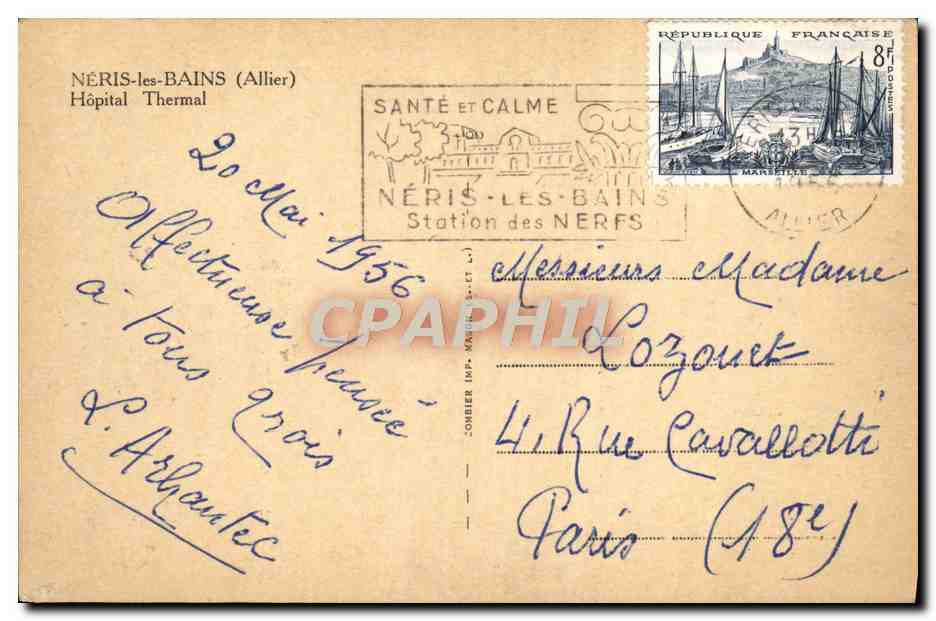 NÉRIS-les-BAINS (Allier)
Hôpital Thermal
SANTÉ ET CALME
NÉRIS-LES-BAINS
Station des NERFS
RÉPUBLIQUE FRANÇAISE
8F
POSTES
MARSEILLE
13H
ALLIER
20 Mai 1956
Affectueuse pensée
à tous trois
L. Arhantec
COMBIER IMP. MACON
CPAPHIL
Messieurs Madame
Lozouet
4, Rue Cavallotti
Paris (18e)